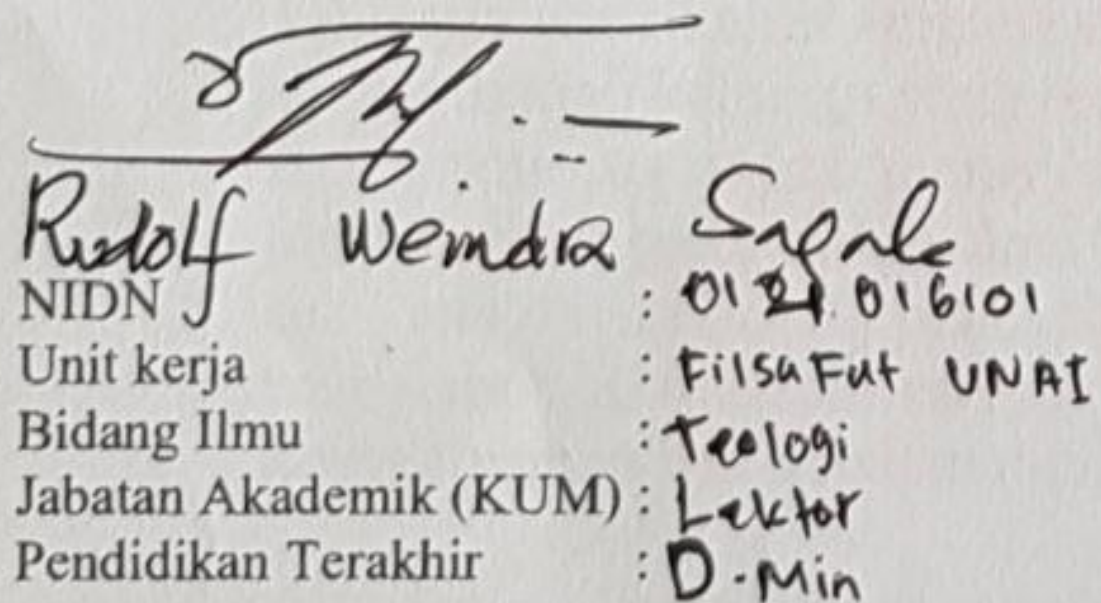 Rudolf Weindra Sagala
NIDN : 0121016101
Unit kerja : Filsafat UNAI
Bidang Ilmu : Teologi
Jabatan Akademik (KUM) : Lektor
Pendidikan Terakhir : D.Min